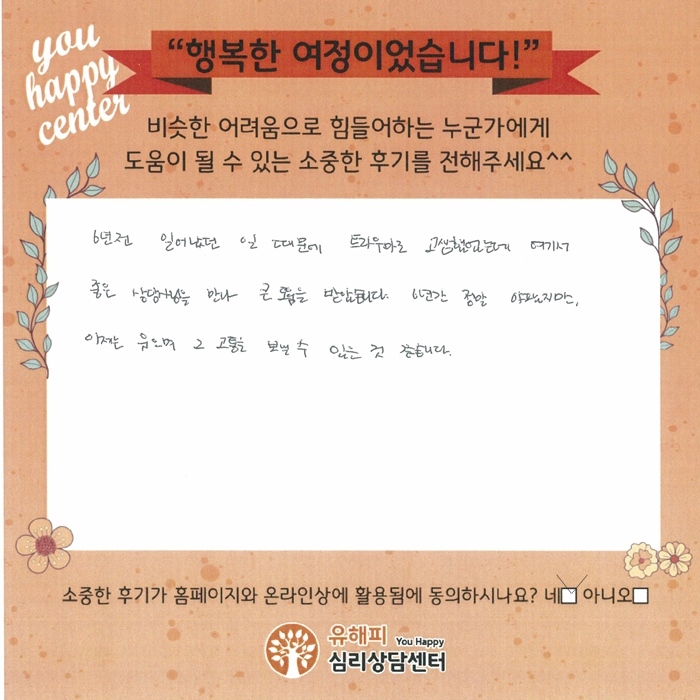 you
happy
center
“행복한 여정이었습니다!”
비슷한 어려움으로 힘들어하는 누군가에게
도움이 될 수 있는 소중한 후기를 전해주세요^^
6년전 일어났던 일 때문에 트라우마로 고생했었는데 여기서
좋은 상담사님을 만나 큰 도움을 받았습니다. 6년간 정말 아팠지만,
이제는 웃으며 그 고통을 보낼 수 있는 것 같습니다.
소중한 후기가 홈페이지와 온라인상에 활용됨에 동의하시나요? 네 아니오
유해피 You Happy
심리상담센터